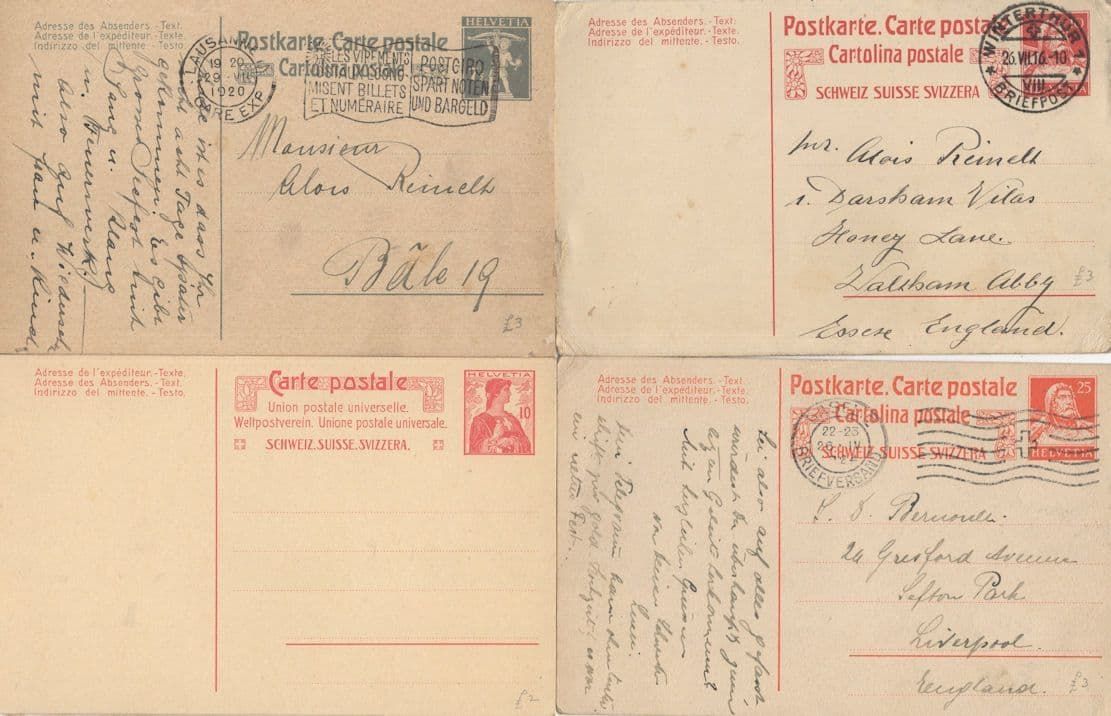 Adresse des Absenders. - Text.
Adresse de l'expéditeur. - Texte.
Indirizzo del mittente. - Testo.
Postkarte. Carte postale
Cartolina postale
HELVETIA
LAUSANNE
19 20
29 VII
1920
GARE EXP
LES VIREMENTS
POSTAUX ÉCONO-
MISENT BILLETS
ET NUMÉRAIRE
POSTGIRO
SPART NOTEN
UND BARGELD
ist es dass Ihr
nicht acht Tage später
gekommen. Es gibt
grosses Seefest mit
Klang u.
u. Feuerwerk.
Also auf Wiedersehn
mit Frau u. Kind
Monsieur
Alois Reinelt
Bâle 19
£3
Adresse des Absenders. - Text.
Adresse de l'expéditeur. - Texte.
Indirizzo del mittente. - Testo.
Postkarte. Carte postale
Cartolina postale
SCHWEIZ SUISSE SVIZZERA
WINTERTHUR 1
26.VII.16.-10
VIII
BRIEFPOST
Mr. Alois Reinelt
1. Darsham Vilas
Honey Lane.
Waltham Abby
Essexe England.
£3
Adresse de l'expéditeur. - Texte.
Adresse des Absenders. - Text.
Indirizzo del mittente. - Testo.
Carte postale
Union postale universelle.
Weltpostverein. Unione postale universale.
SCHWEIZ. SUISSE. SVIZZERA.
HELVETIA
10
£2
Adresse des Absenders. - Text.
Adresse de l'expéditeur. - Texte.
Indirizzo del mittente. - Testo.
Postkarte. Carte postale
Cartolina postale
SCHWEIZ-SUISSE-SVIZZERA
25
HELVETIA
22-23
IV
BRIEFVERSAND
Sei also auf alles gefasst
würdest Du überhaupt zum
Mit herzlichen Grüssen
von Deiner
Dein Telegramm kam
Bernoulli
29 Gresford Avenue
Sefton Park
Liverpool.
England.
£3